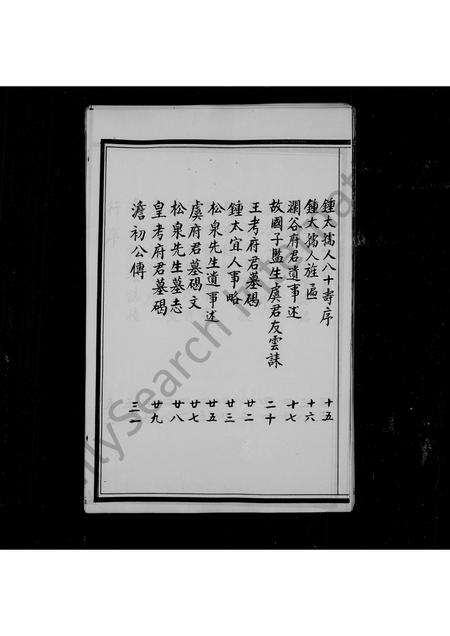 鍾太孺人八十壽序 十五
鍾太孺人旌區 十六
瀾谷府君遺事述 十七
故國子監生虞君友雲誄 二十
王考府君墓碣 廿二
鍾太宜人事略 廿三
松泉先生遺事述 廿五
虞府君墓碣文 廿七
松泉先生墓志 廿八
皇考府君墓碣 廿九
澹初公傳 三一